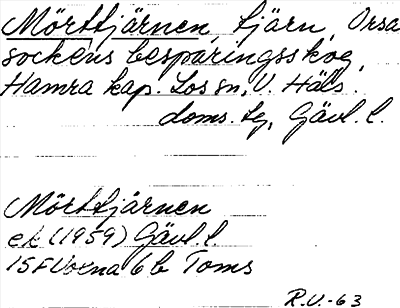 Mörttjärnen, tjärn, Orsa
sockens besparingsskog,
Hamra kap. Los sn, V. Häls.
doms. tg, Gävl. l.
Mörttjärnen
ek (1959) Gävl. l.
15F Voxna 6b Toms
R.U.-63